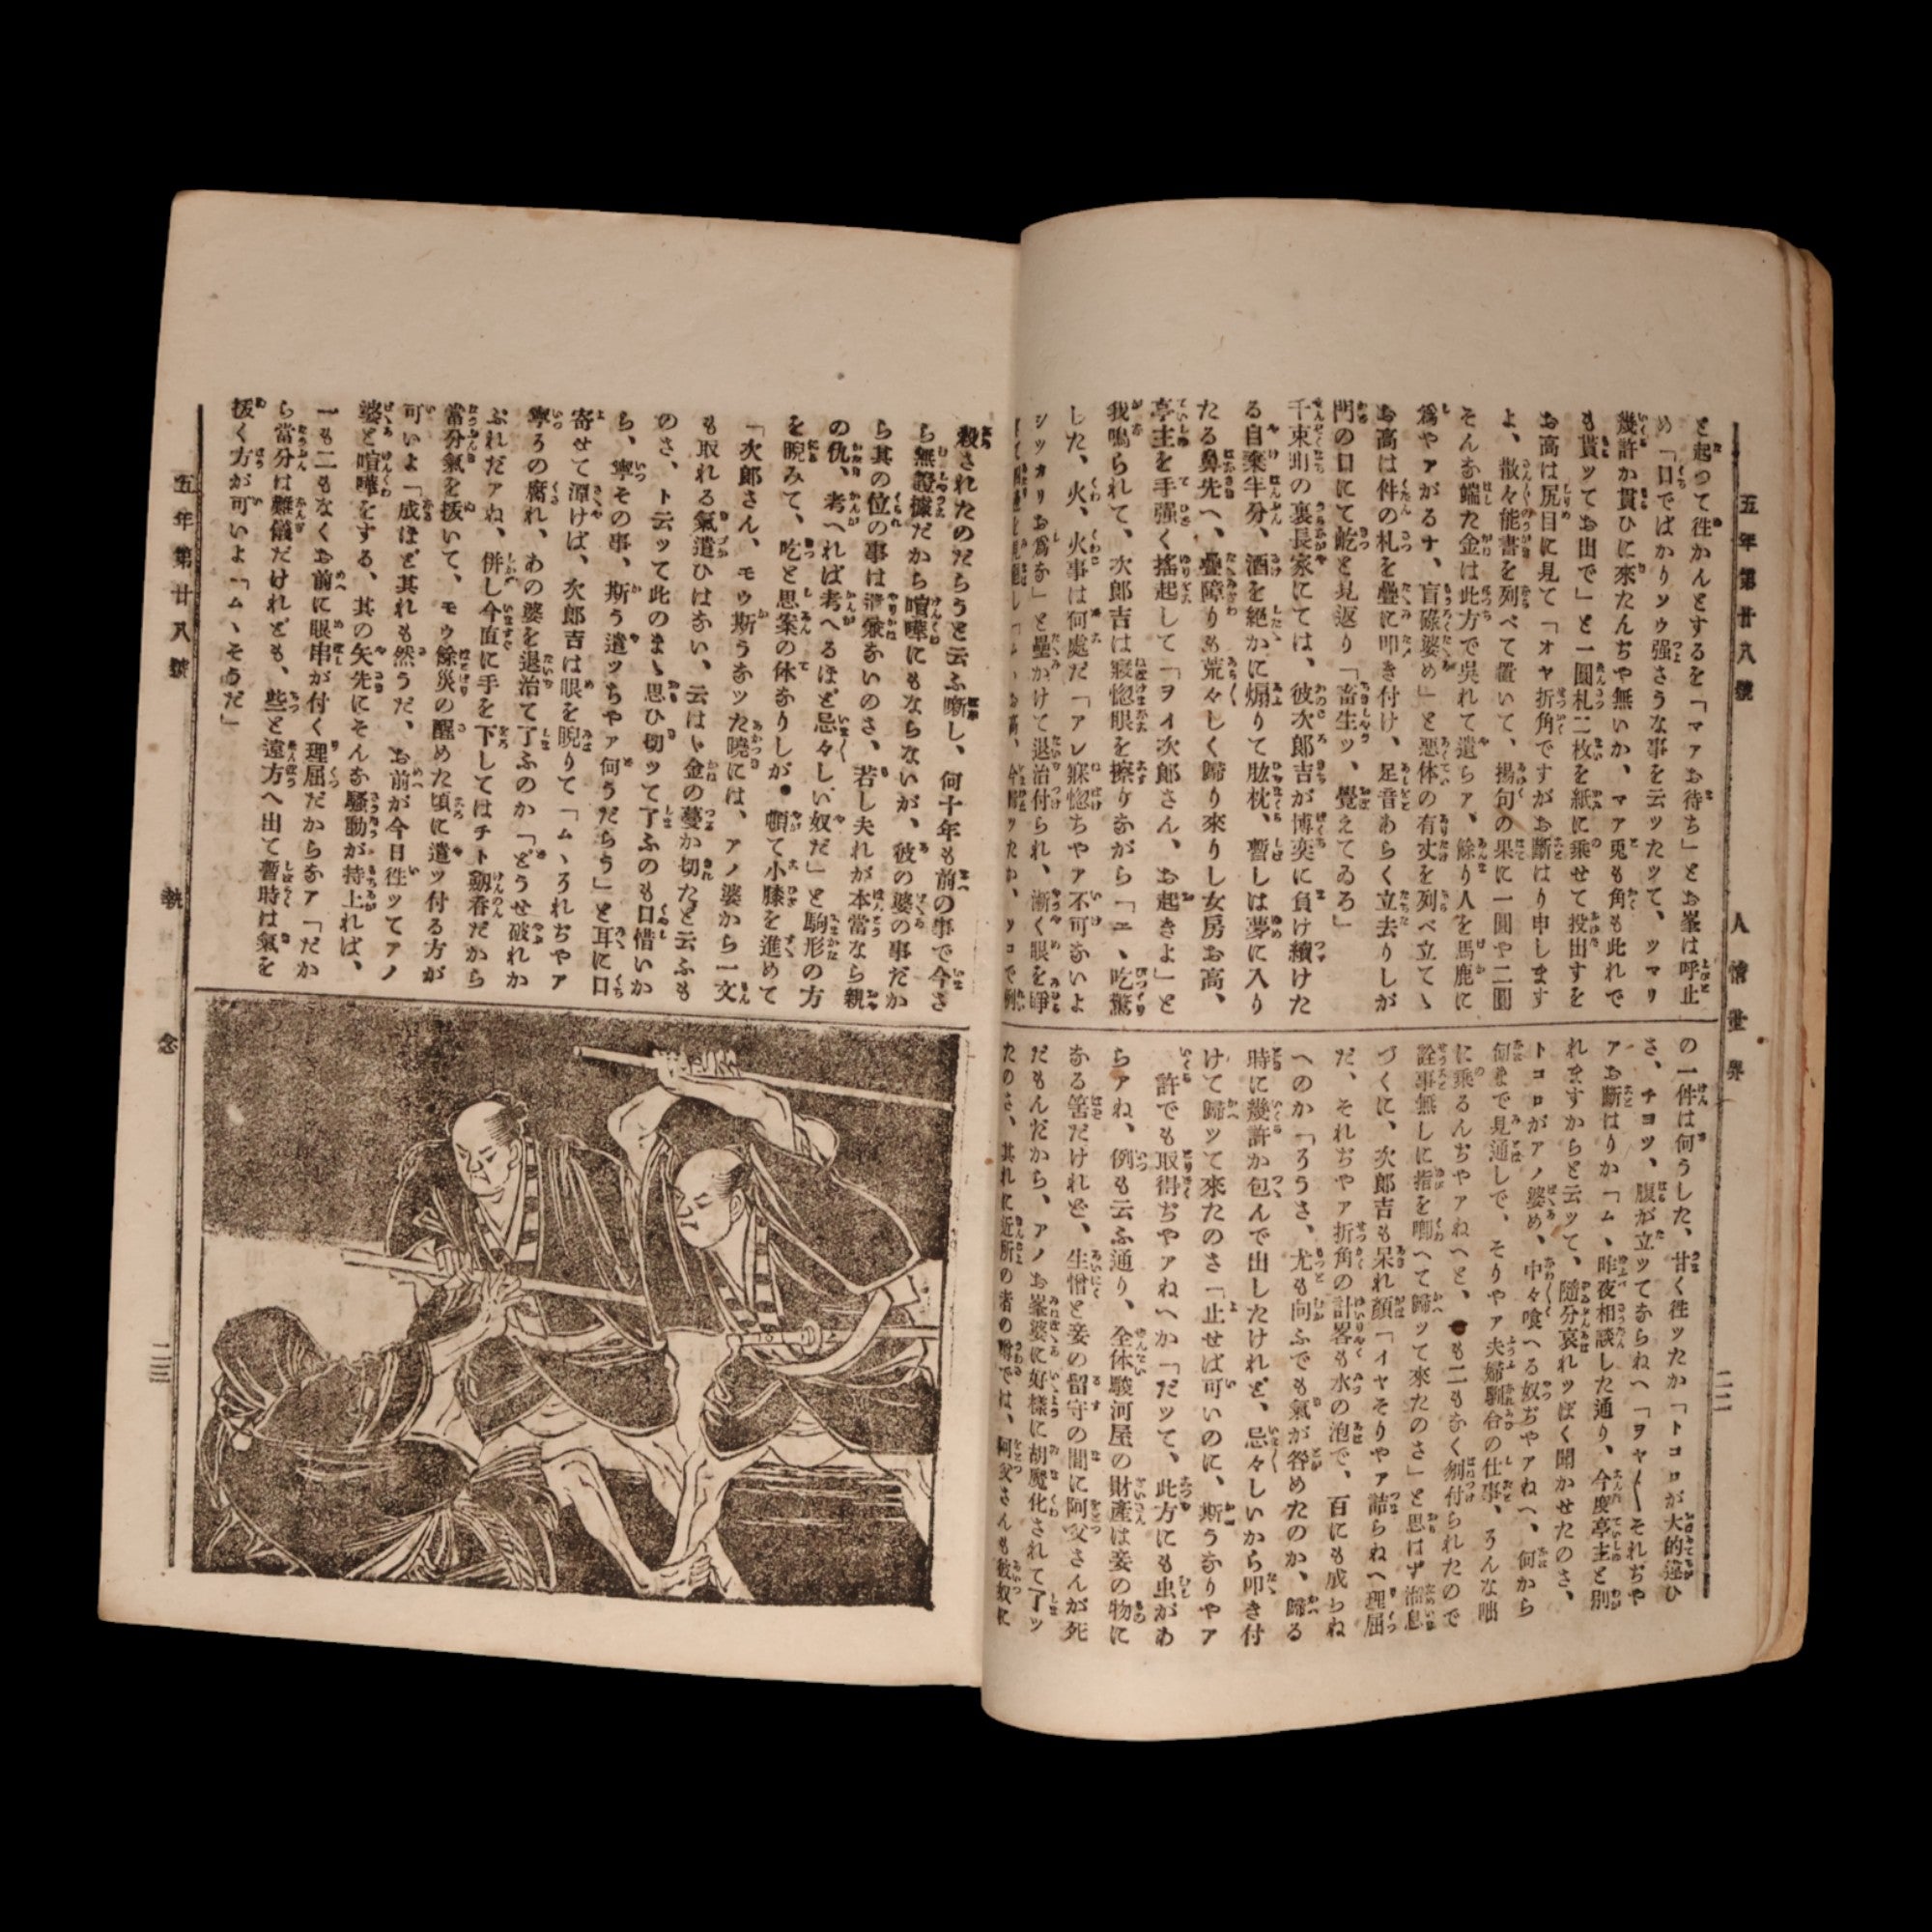 五年第廿八號
人情世界
二二
と起つて徃かんとするを「マァお待ち」とお峯は呼止
め「口でばかりソウ强さうな事を云ッたッて、ツマリ
幾許か貰ひに來たんぢや無いか、マア兎も角も此れで
も貰ッてお出で」と一圓札二枚を紙に乘せて投出すを
お高は尻目に見て「オヤ折角ですがお斷はり申します
よ、散々能書を列べて置いて、揚句の果に一圓や二圓
そんな端た金は此方で吳れて遣らァ、餘り人を馬鹿に
爲やァがるナ、盲碌婆め」と悪体の有丈を列べ立てゝ
お高は件の札を疊に叩き付け、足音あらく立去りしが
門の口にて屹と見返り「畜生ッ、覺えてゐろ」
千束町の裏長家にては、彼次郎吉が博奕に負け續けた
る自棄半分、酒を絶かに煽りて肱枕、暫しは夢に入り
たる鼻先へ、疊障りも荒々しく歸り來りし女房お高、
亭主を手强く搖起して「ヲイ次郎さん、お起きよ」と
我鳴られて、次郎吉は寢惚眼を擦りながら「エ、吃驚
した、火、火事は何處だ「アレ寐惚ちやァ不可ないよ
シッカリお爲な」と疊かけて退治付られ、漸く眼を睜
の一件は何うした、甘く徃ッたか「トコロが大的違ひ
さ、チヨツ、腹が立ッてならねへ「ヲヤ〳〵それぢや
アお斷はりか「ム、昨夜相談した通り、今度亭主と別
れますからと云ッて、隨分哀れッぽく聞かせたのさ、
トコロがアノ婆め、中々喰へる奴ぢやアねへ、何から
何まで見通しで、そりやア夫婦馴合の仕事、ろんな咄
に乘るんぢやアねへと、一も二もなく刎付られたので
詮事無しに指を啣へて歸ッて來たのさ」と思はず溜息
づくに、次郎吉も呆れ顏「イヤそりやア詰らねへ理屈
だ、それぢやア折角の計畧も水の泡で、百にも成らね
へのか「ろうさ、尤も向ふでも氣が咎めたのか、歸る
時に幾許か包んで出したけれど、忌々しいから叩き付
けて歸ッて來たのさ「止せば可いのに、斯うなりやア
許でも取得ぢやアねへか「だッて、此方にも虫があ
らァね、例も云ふ通り、全体駿河屋の財產は妾の物に
なる筈だけれど、生憎と妾の留守の間に阿父さんが死
だもんだから、アノお峯婆に好樣に胡魔化されて了ッ
たのさ、其れに近所の者の噂では、阿父さんも彼奴に
殺されたのだらうと云ふ噺し、何十年も前の事で今さ
ら無證據だから喧嘩にもならないが、彼の婆の事だか
ら其の位の事は爲兼ないのさ、若し夫れが本當なら親
の仇、考へれば考へるほど忌々しい奴だ」と駒形の方
を睨みて、吃と思案の休なりしが 頓て小膝を進めて
「次郎さん、モウ斯うなッた曉には、アノ婆から一文
も取れる氣遣ひはない、云はゞ金の蔓が切たと云ふも
のさ、ト云ッて此のまゝ思ひ切ッて了ふのも口惜いか
ら、寧その事、斯う遣ッちやァ何うだらう」と耳に口
寄せて潭けば、次郎吉は眼を睨りて「ムヽろれぢやア
寧ろの腐れ、あの婆を退治て了ふのか「どうせ破れか
ぶれだァね、併し今直に手を下してはチト劔呑だから
當分氣を拔いて、モウ餘災の醒めた頃に遣ッ付る方が
可いよ「成ほど其れも然うだ、お前が今日徃ッてアノ
婆と喧嘩をする、其の矢先にそんな騷動が持上れば、
一も二もなくお前に眼串が付く理屈だからなア「だか
ら當分は難儀だけれども、些と遠方へ出て暫時は氣を
拔く方が可いよ「ムヽそうだ」
五年第廿八號
執念
二三